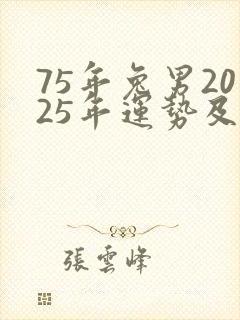 75年兔男20
25年運勢及
張雲峰